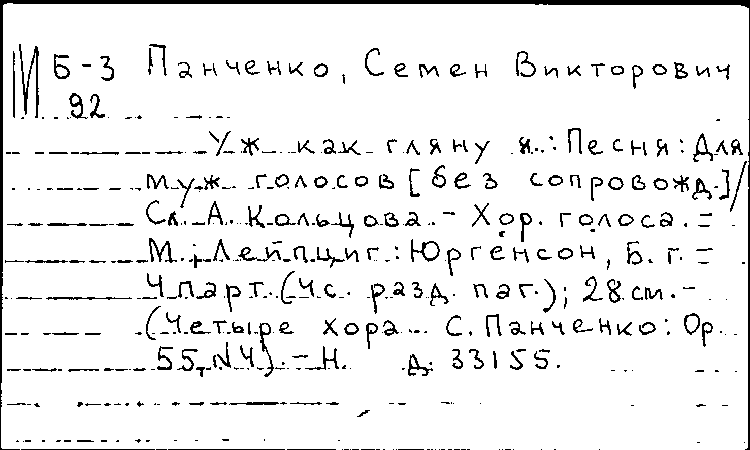 М Б-3 Панченко, Семен Викторович
92
Уж как гляну я..: Песня: Для
муж голосов [без сопровожд.]/
Сл. А. Кольцова. - Хор. голоса. =
М.; Лейпциг: Юргенсон, Б. г. =
4 парт. (4 с. разд. паг.); 28 см. -
(Четыре хора... С. Панченко: Op.
55, №4). - Н. д. 33155.